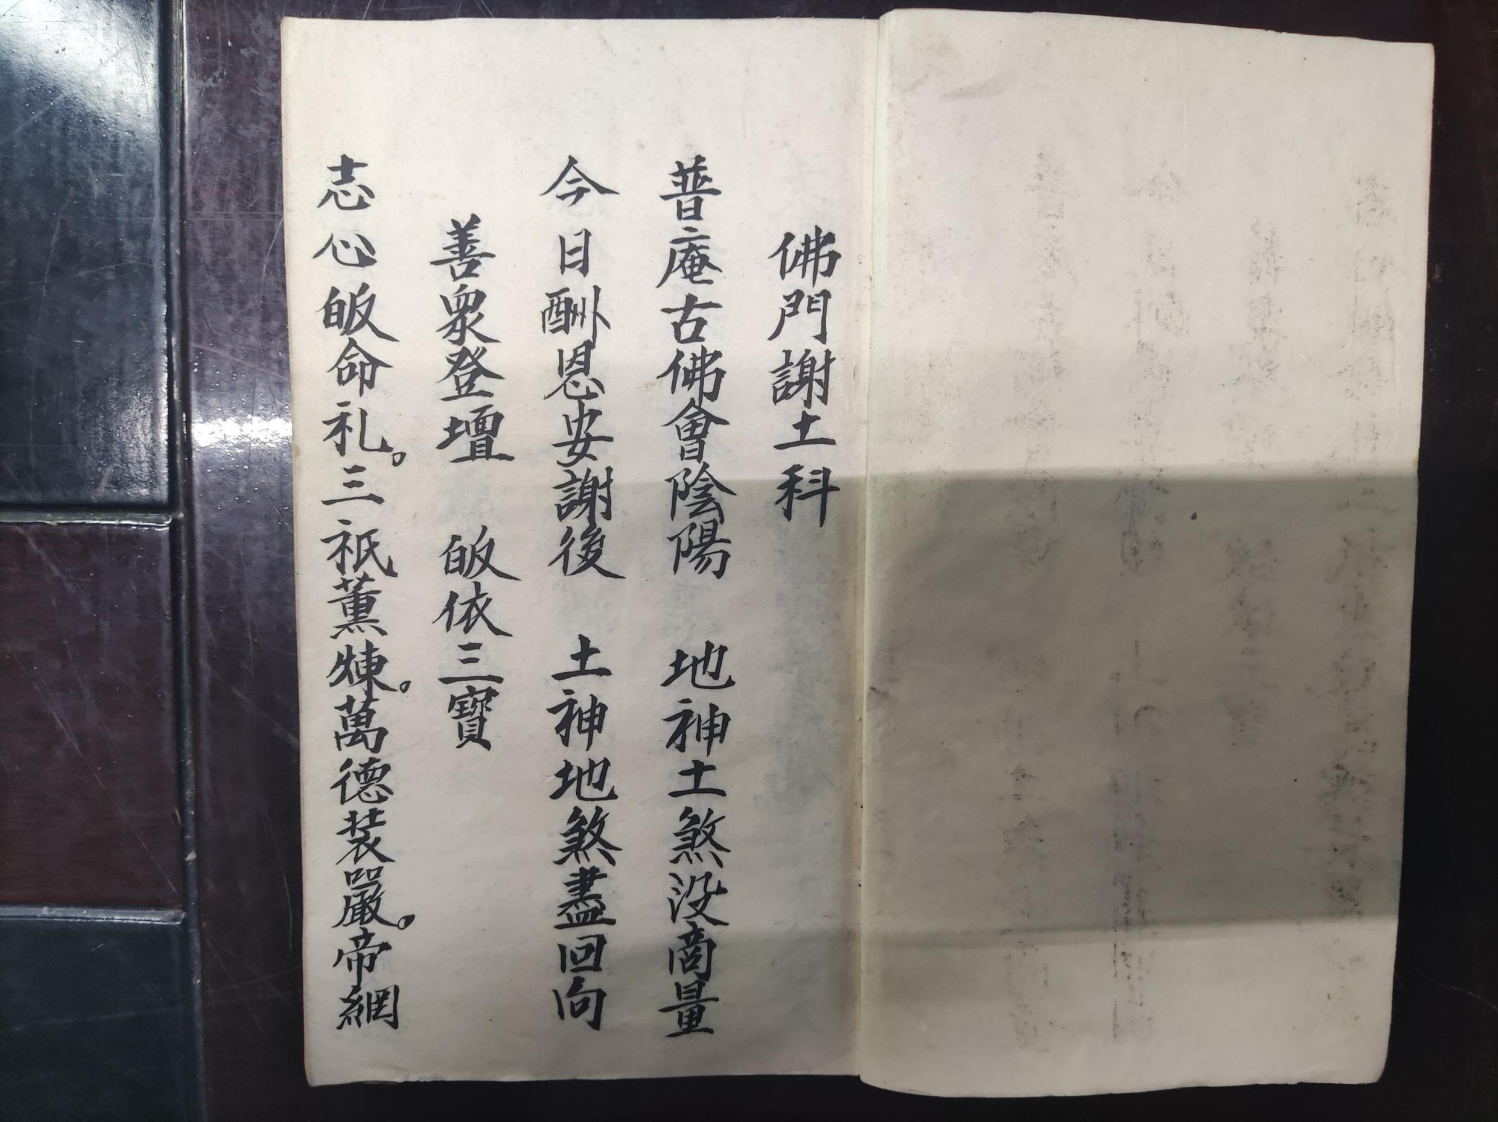 佛門謝土科
普庵古佛會陰陽 地神土煞没商量
今日酬恩安謝後 土神地煞盡回向
善衆登壇 皈依三寶
志心皈命礼。三祇薰煉。萬德装嚴。帝網